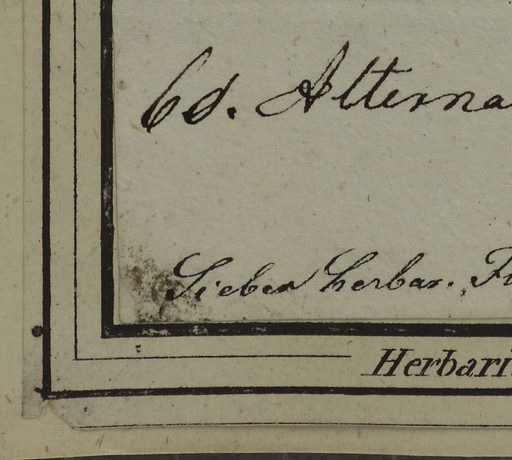 60. Alterna
Sieber herbar. Fl
Herbari